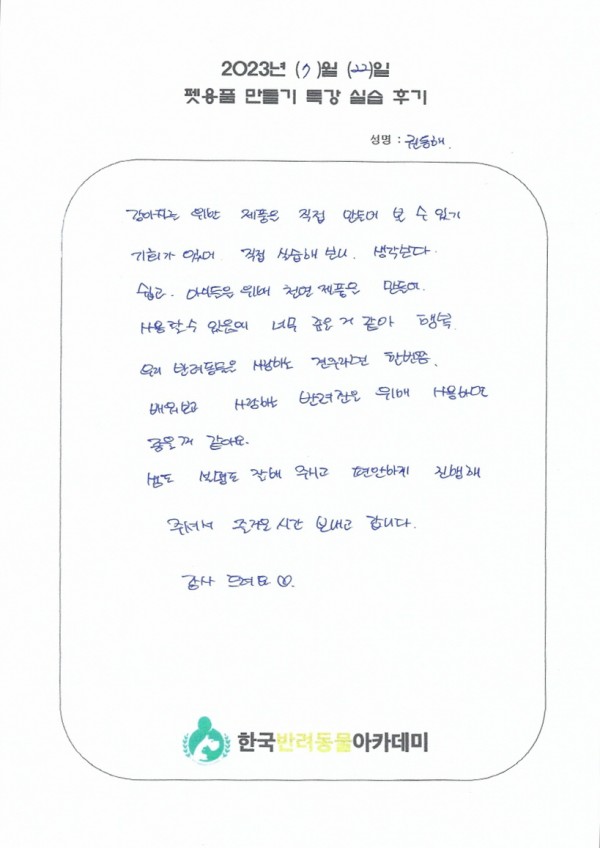 2023년 (7)월 (22)일
펫용품 만들기 특강 실습 후기
성명 : 권동해.
강아지를 위한 제품을 직접 만들어 볼 수 있는
기회가 있어 직접 실습해 보니. 생각보다.
쉽고. 아이들을 위해 천연 제품을 만들어.
사용할 수 있음에 너무 좋은 거 같아 행복.
우리 반려동물을 사랑하는 견주라면 한번쯤.
배워보고 사랑하는 반려견을 위해 사용하면
좋을꺼 같아요.
쌤도 설명도 잘해 주시고 편안하게 진행해
주셔서 즐거운 시간 보내고 갑니다.
감사 드려요
한국반려동물아카데미